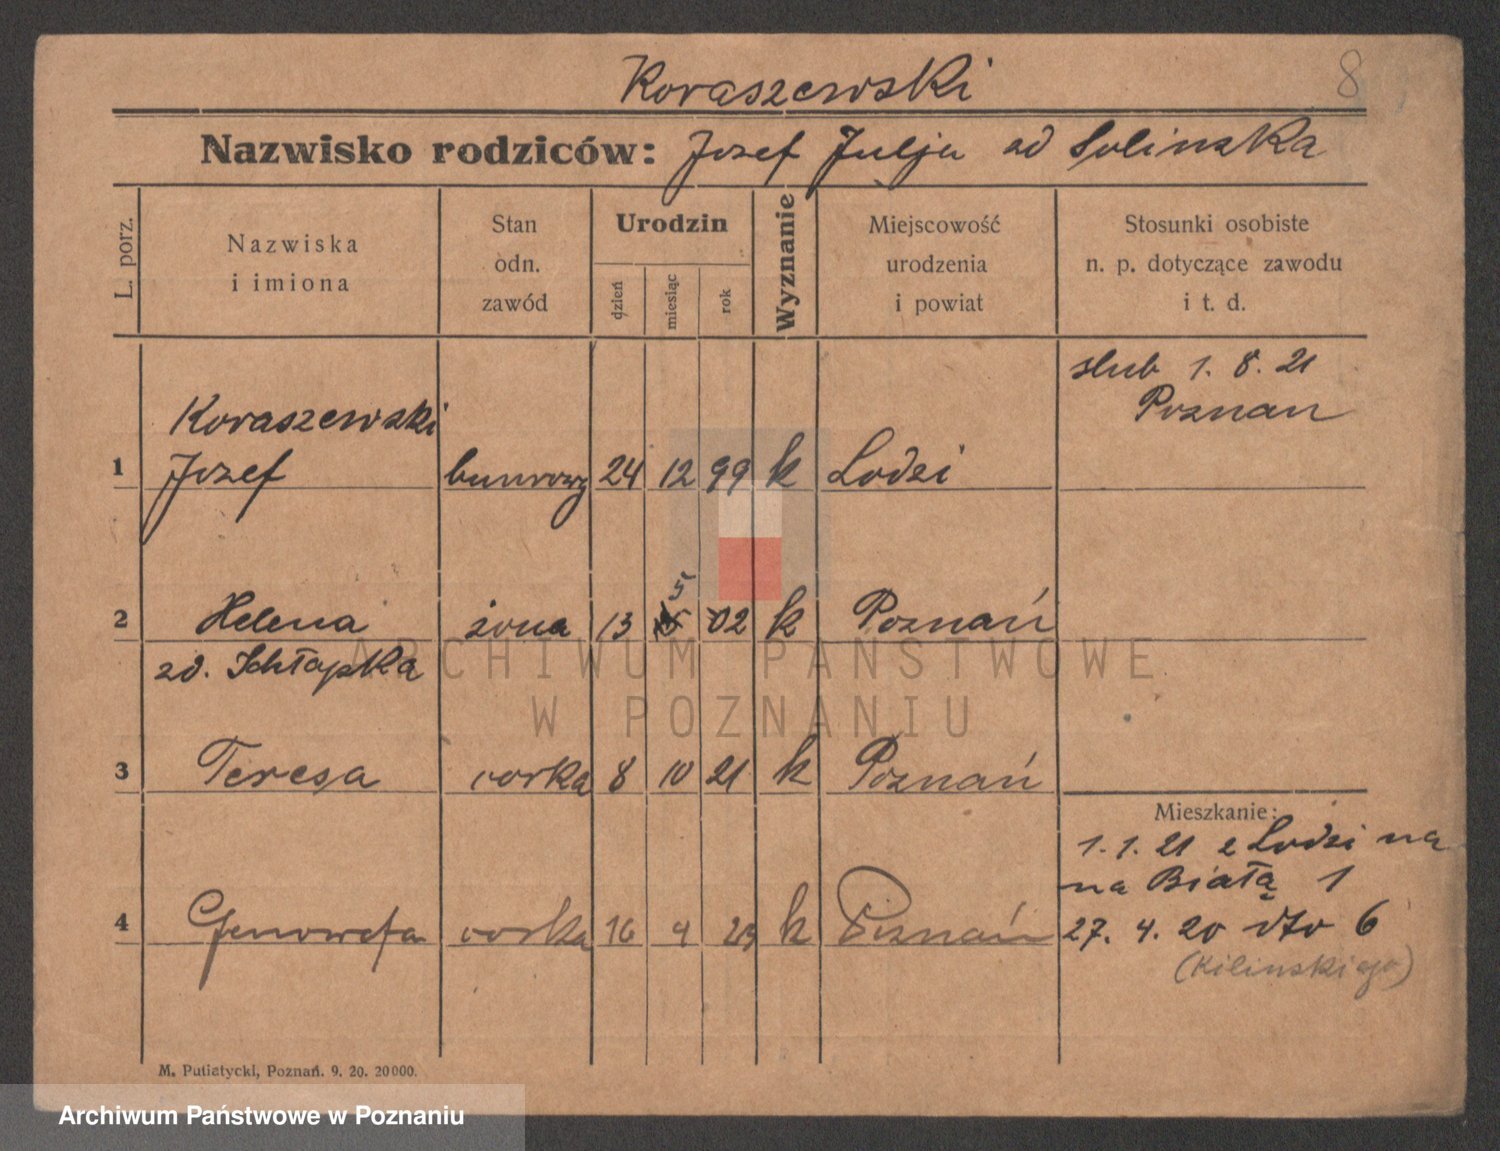 8
Koraszewski
Nazwisko rodziców: Jozef Julja zd Solinska
L. porz.
Nazwiska
i imiona
Stan
odn.
zawód
Urodzin
dzień
miesiąc
rok
Wyznanie
Miejscowość
urodzenia
i powiat
Stosunki osobiste
n. p. dotyczące zawodu
i t. d.
slub 1. 8. 21
Poznan
Koraszewski
1 Jozef 24 12 99 k Lodzi
5
2 Helena żona 13 02 k Poznań
zd. Schłapka
3 Teresa corka 8 10 21 k Poznań
Mieszkanie:
1. 1. 21 z Lodzi na
na Białą 1
4 Genowefa corka 16 4 k Poznań
27. 4. 20 dto 6
(Kilinskiego)
M. Putiatycki, Poznań. 9. 20. 20000.
ARCHIWUM PAŃSTWOWE
W POZNANIU
Archiwum Państwowe w Poznaniu